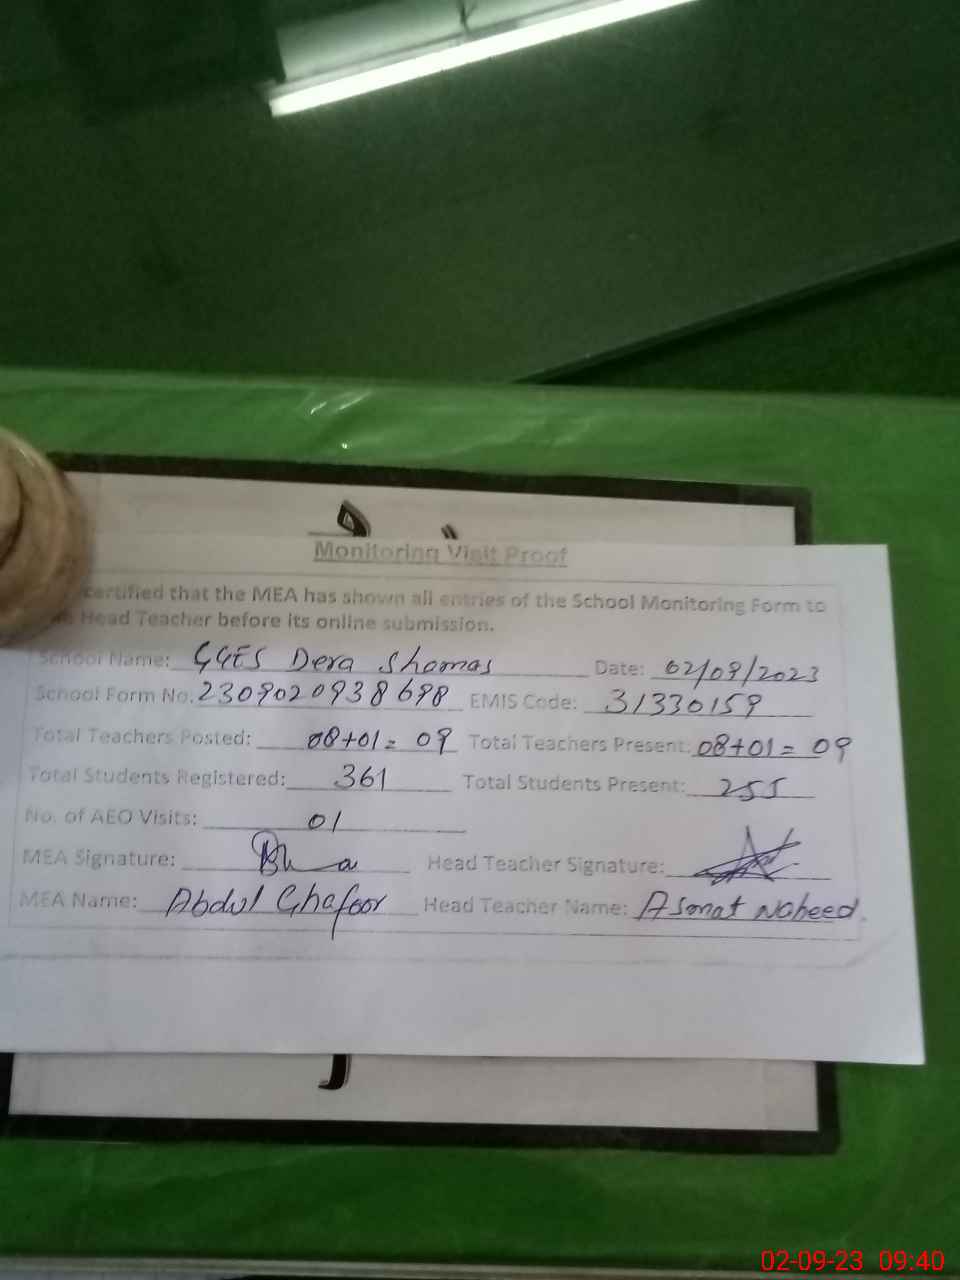 Monitoring Visit Proof
certified that the MEA has shown all entries of the School Monitoring Form to
Head Teacher before its online submission.
School Name: GGES Dera Shamas Date: 02/09/2023
School Form No. 2309020938698 EMIS Code: 31330159
Total Teachers Posted: 08+01= 09 Total Teachers Present: 08+01= 09
Total Students Registered: 361 Total Students Present: 255
No. of AEO Visits: 01
MEA Signature: Head Teacher Signature:
MEA Name: Abdul Ghafoor Head Teacher Name: Asmat Naheed.
02-09-23 09:40